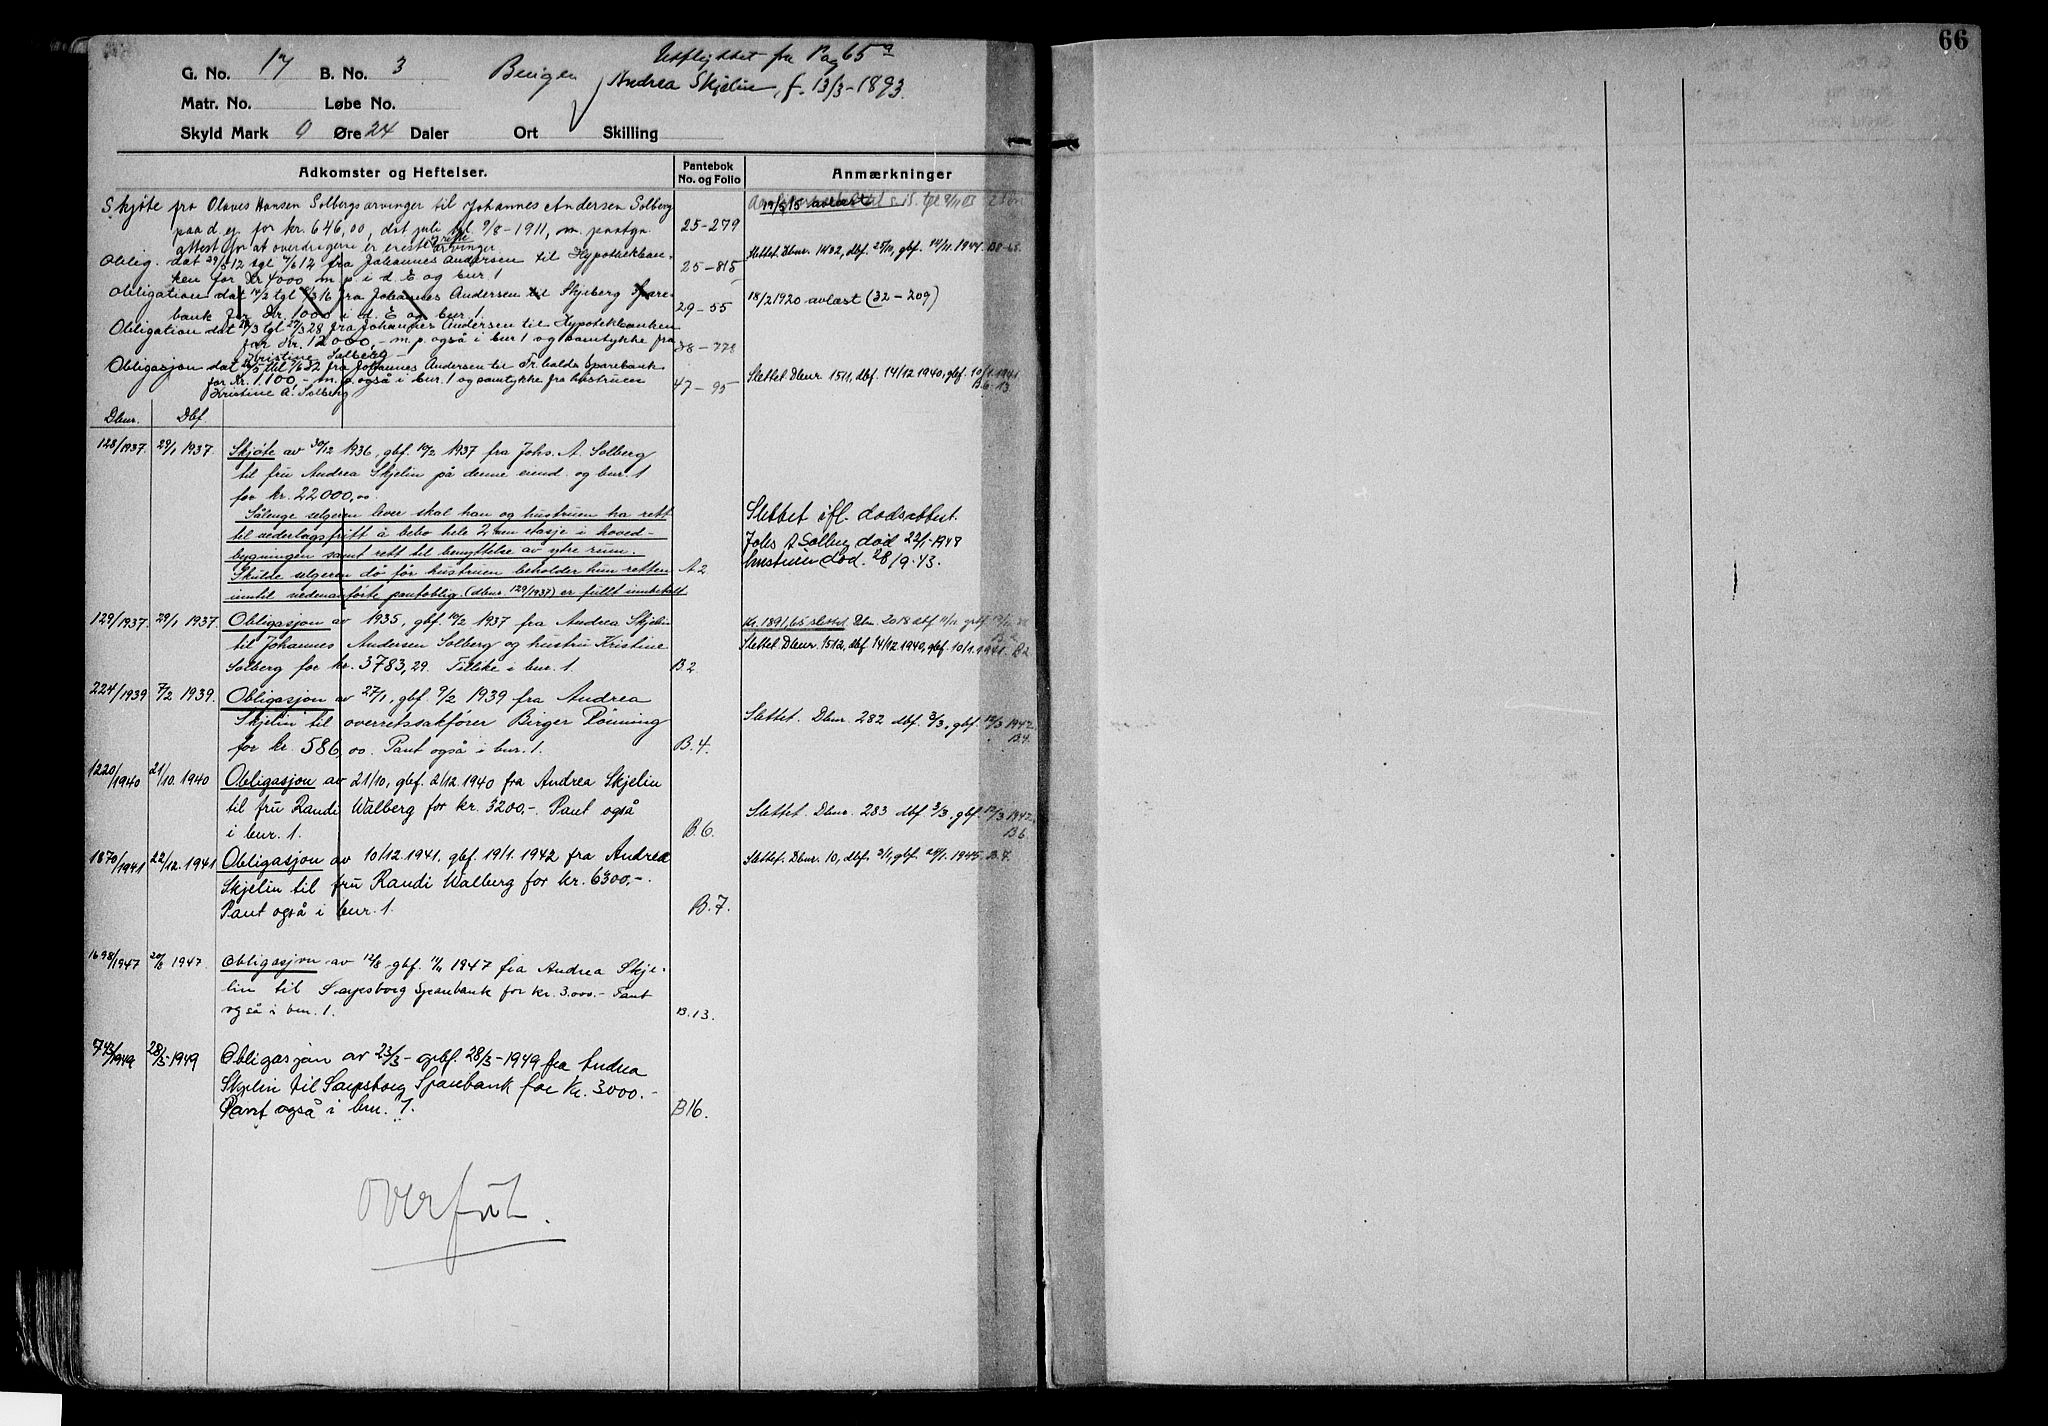 66
Utflyttet fra Pag 65a
G. No. 17 B. No. 3 Bergen Andrea Skjelin, f. 13/3-1893
Matr. No. Løbe No.
Skyld Mark 0 Øre 24 Daler Ort Skilling
Adkomster og Heftelser. Pantebok No. og Folio Anmærkninger
Skjøte fra Olaves Hansen Solbergs arvinger til Johannes Andersen Solberg
paa d. ej. for kr. 646,00, dat juli tgl. 9/8-1911, m. paategn. 25-279 19/5 15 avlæst
attest for at overdragerne er eneste rette arvinger
Oblig. dat 29/5 12 tgl 4/6 12 fra Johannes Andersen til Hypothekban- 25-815 Slettet Dbnr. 1402, dbf. 25/10, gbf. 14/11. 1947. B8-65.
ken for Kr 4000 m. p. i d. E og bnr. 1
Obligation dat 14/2 tgl 8/3 16 fra Johannes Andersen til Skjeberg Spare- 29-55 18/2 1920 avlæst (32-209)
bank for Kr. 1000 i d. E og bnr. 1.
Obligation dat 24/3 tgl 27/3 28 fra Johannes Andersen til Hypotekbanken
for Kr. 12000,- m. p. også i bnr 1 og samtykke fra 38-778
Kristine Solberg -
Obligasjon dat 24/5 til 1/6 32 fra Johannes Andersen til Tr. halds Sparebank Slettet Dbnr 1511, dbf. 14/12 1940, gbf. 10/1. 1941
for Kr. 1.100,- m. p. også i bnr. 1 og samtykke fra hustruen 47-95 B6-13.
Kristine A. Solberg
Dbnr. Dbf.
128/1937. 29/1 1937 Skjøte av 30/12 1936, gbf. 10/2 1937 fra Johs. A. Solberg
til fru Andrea Skjelin på denne eiend. og bnr. 1
for kr. 22000,00.
Sålenge selgeren lever skal han og hustruen ha rett Slettet ifl. dødsattest.
til vederlagsfritt å bebo hele 2nen etasje i hoved- Johs A Solberg død 22/1-1948
bygningen samt rett til benyttelse av ytre rum. hustruen død. 28/9.43.
Skulde selgeren dø før hustruen beholder hun retten A2
inntil nedenanførte pantoblig. (dbnr. 129/1937) er fullt innbetalt
129/1937. 29/1 1937. Obligasjon av 1935, gbf. 10/2 1937 fra Andrea Skjelin Kr. 1891,65 slettet Dbn. 2018 dbf
til Johannes Andersen Solberg og hustru Kristine Slettet Dbnr. 1512, dbf 14/12 1940, gbf. 10/1. 1941. B2.
Solberg for kr. 3783,29. Tillike i bnr. 1. B.2
224/1939 7/2 1939. Obligasjon av 27/1, gbf. 9/2 1939 fra Andrea
Skjelin til overretssakfører Birger Rönning Slettet. Dbnr. 282 dbf. 3/3, gbf. 12/3 1942.
for kr. 586,00. Pant også i bnr. 1. B.4. B.4.
1220/1940 21/10. 1940 Obligasjon av 21/10, gbf. 2/12. 1940 fra Andrea Skjelin
til fru Randi Walberg for kr. 3200,-. Pant også Slettet. Dbnr. 283 dbf. 3/3, gbf. 12/3 1942.
i bnr. 1. B.6. B.6.
1870/1941 22/12. 1941 Obligasjon av 10/12. 1941. gbf. 19/1. 1942 fra Andrea Slettet. Dbnr. 10, dbf. 3/1, gbf. 1945. B.7.
Skjelin til fru Randi Walberg for kr. 6300,-.
Pant også i bnr. 1. B.7.
1698/1947 20/8 1947. Obligasjon av 12/8 gbf. 11/11 1947 fra Andrea Skje-
lin til Sarpsborg Sparebank for kr. 3.000.- Pant
også i bnr. 1. B.13.
743/1949 28/3 1949 Obligasjon av 23/3- gbf. 28/3-1949 fra Andrea
Skjelin til Sarpsborg Sparebank for Kr. 3000.-
Pant også i bnr. 1. B16.
overført.